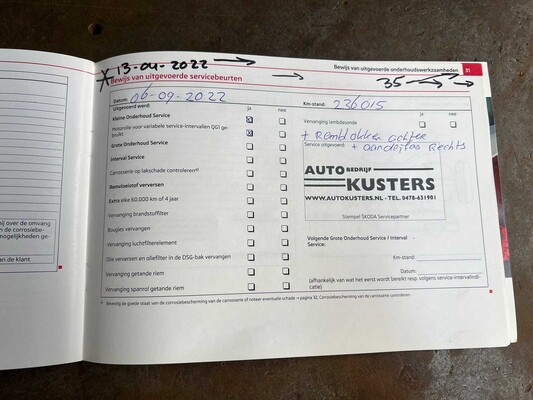 Bewijs van uitgevoerde onderhoudswerkzaamheden 31
13-04-2022
35
Bewijs van uitgevoerde servicebeurten
Datum: 06-09-2022
Km-stand: 236015
Uitgevoerd werd:
ja nee
ja nee
Kleine Onderhoud Service
Vervanging lambdasonde
motorolie voor variabele service-intervallen QG1 ge-
bruikt
+ Remblokken achter
Service uitgevoerd: + aandrijfas Rechts
Grote Onderhoud Service
Interval Service
Carrosserie op lakschade controleren
Remvloeistof verversen
Extra elke 60.000 km of 4 jaar
Vervanging brandstoffilter
Bougies vervangen
Vervanging luchtfilterelement
Olie verversen en oliefilter in de DSG-bak vervangen
Vervanging getande riem
Vervanging spanrol getande riem
AUTO BEDRIJF
KUSTERS
WWW.AUTOKUSTERS.NL - TEL. 0478-631901
Stempel ŠKODA Servicepartner
Volgende Grote Onderhoud Service / Interval
Service:
Km-stand:
Datum:
(afhankelijk van wat het eerst wordt bereikt resp. volgens service-intervalindi-
catie)
Bevestig de goede staat van de corrosiebescherming van de carrosserie of noteer eventuele schade → pagina 32, Corrosiebescherming van de carrosserie controleren
hij over de omvang
n de corrosiebe-
mogelijkheden ge-
an de klant